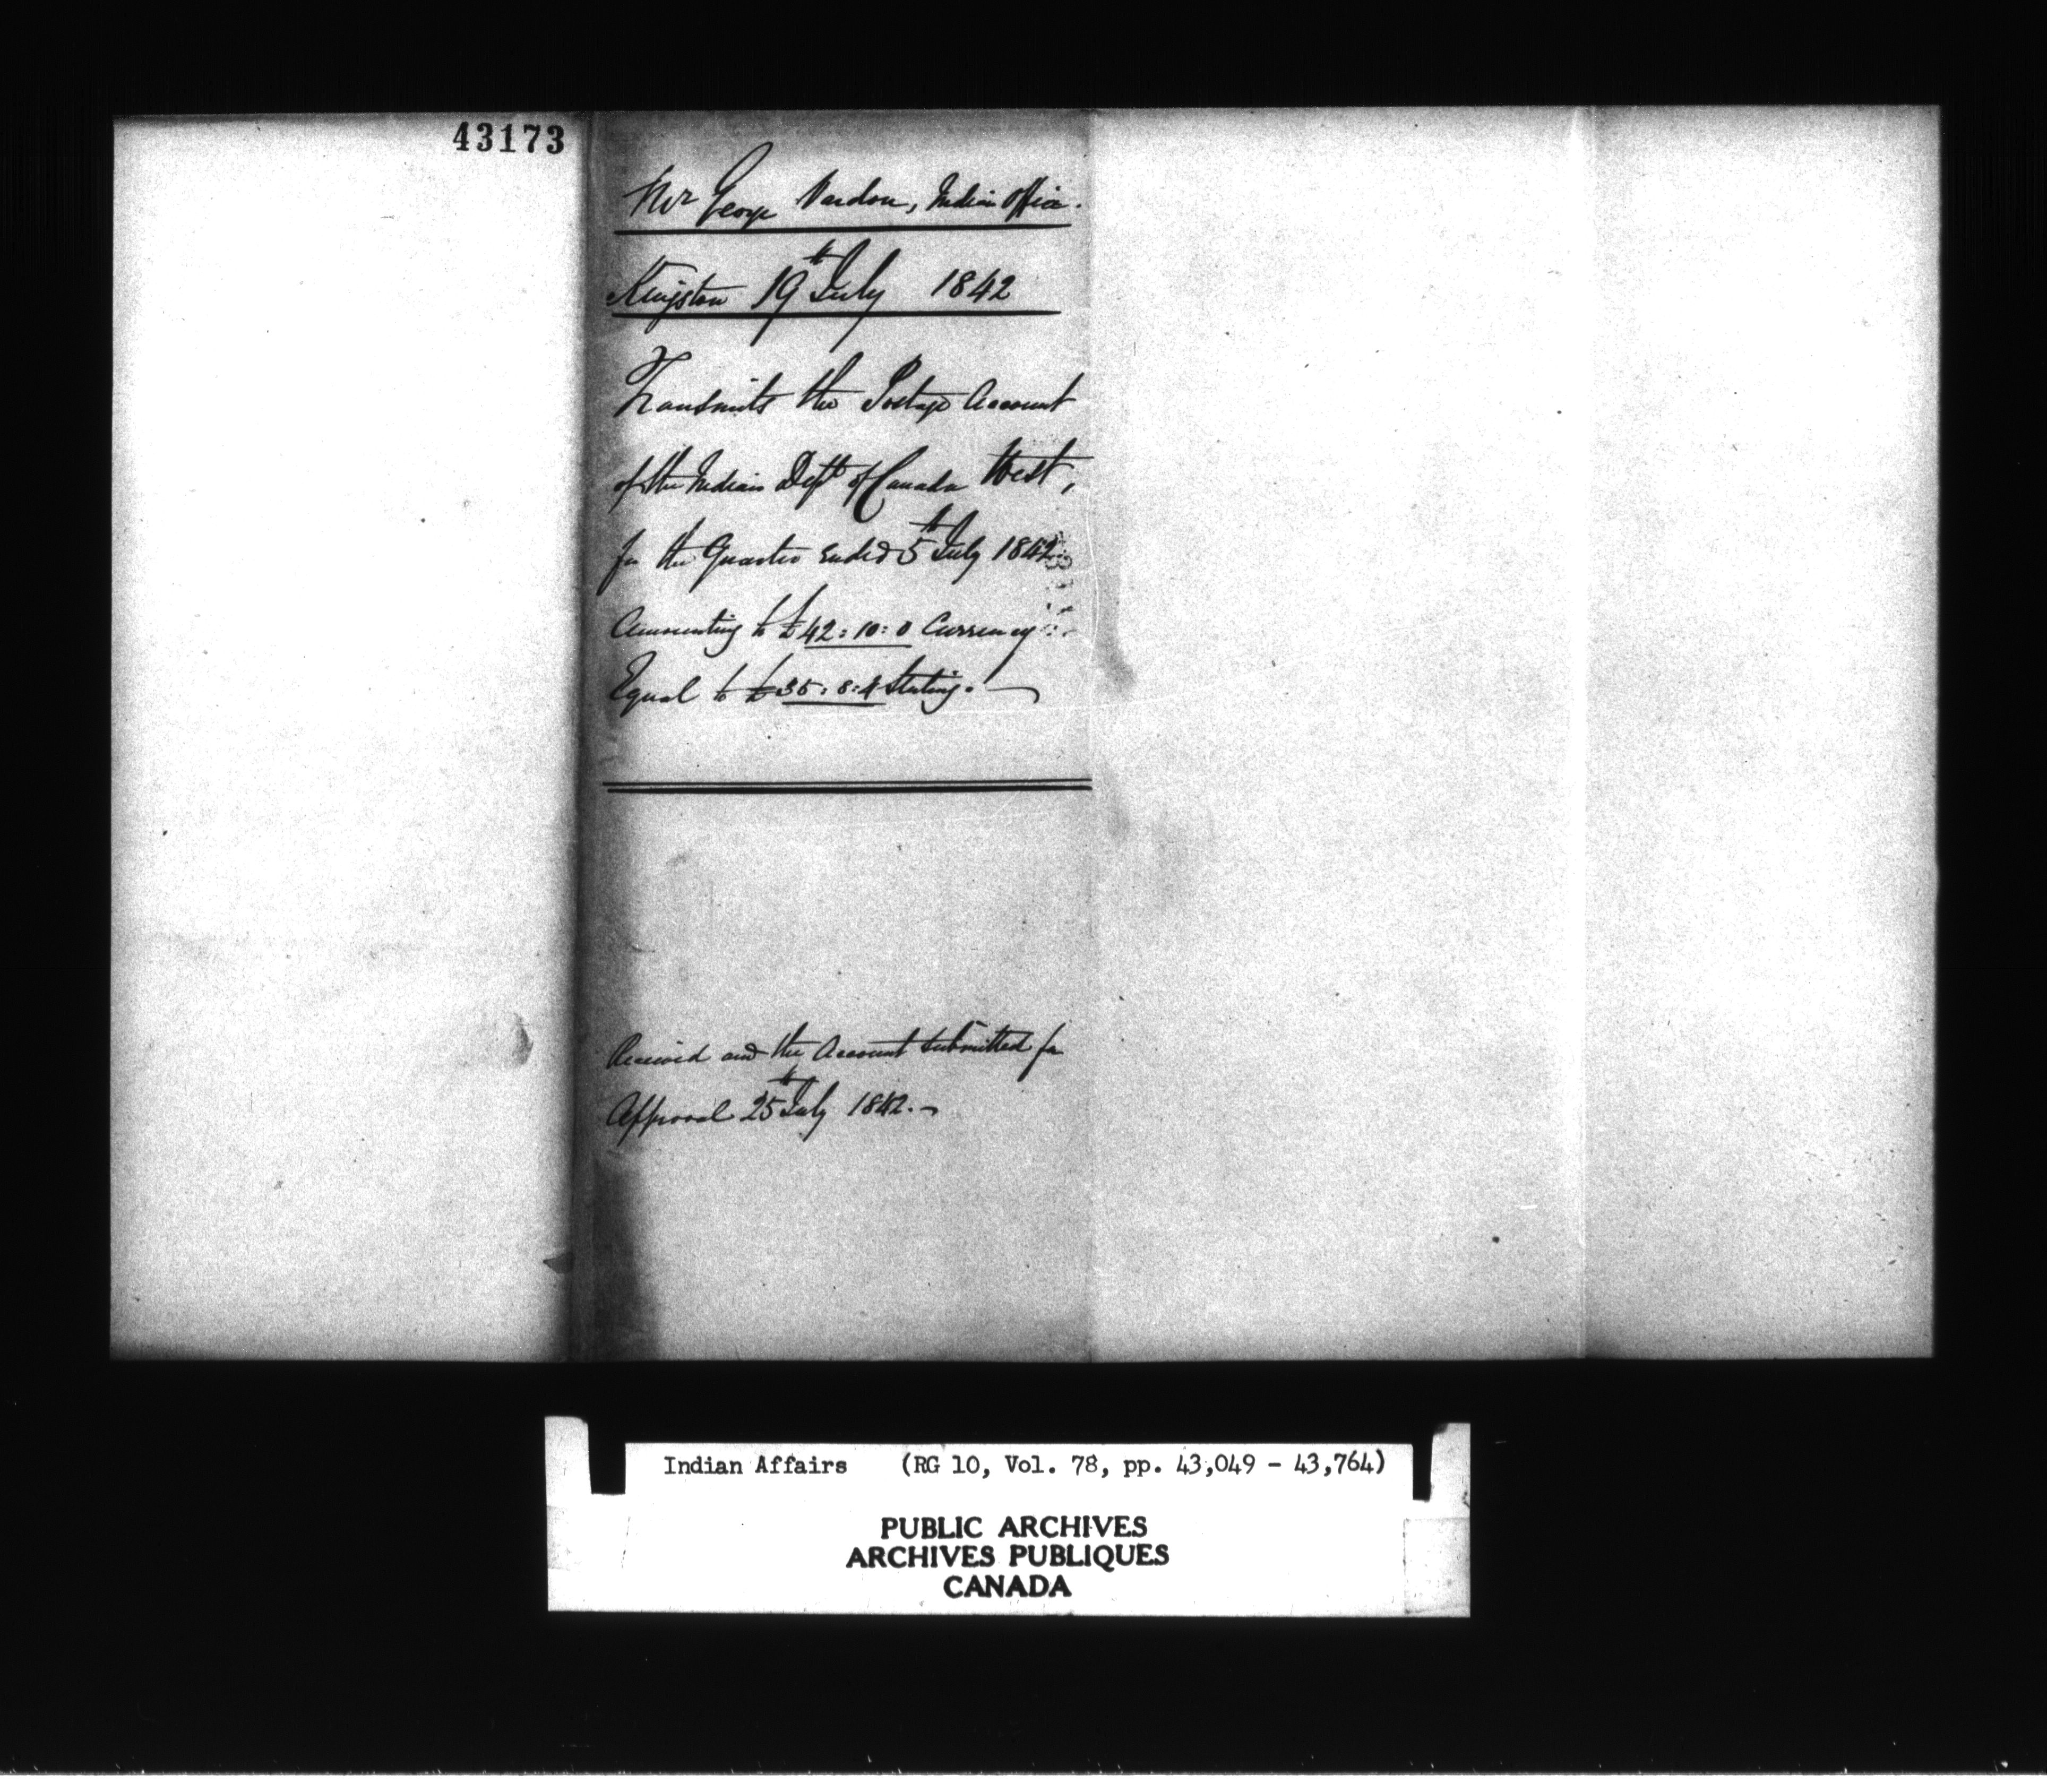 43173
Mr George Vardon, Indian Office.
Kingston 19th July 1842
Transmits the Postage Account
of the Indian Dept of Canada West,
for the Quarter ended 5th July 1842
Amounting to £42:10:0 Currency
Equal to £35:8:4 Sterling.
Received and the Account submitted for
Approval 25th July 1842.
Indian Affairs (RG 10, Vol. 78, pp. 43,049 - 43,764)
PUBLIC ARCHIVES
ARCHIVES PUBLIQUES
CANADA